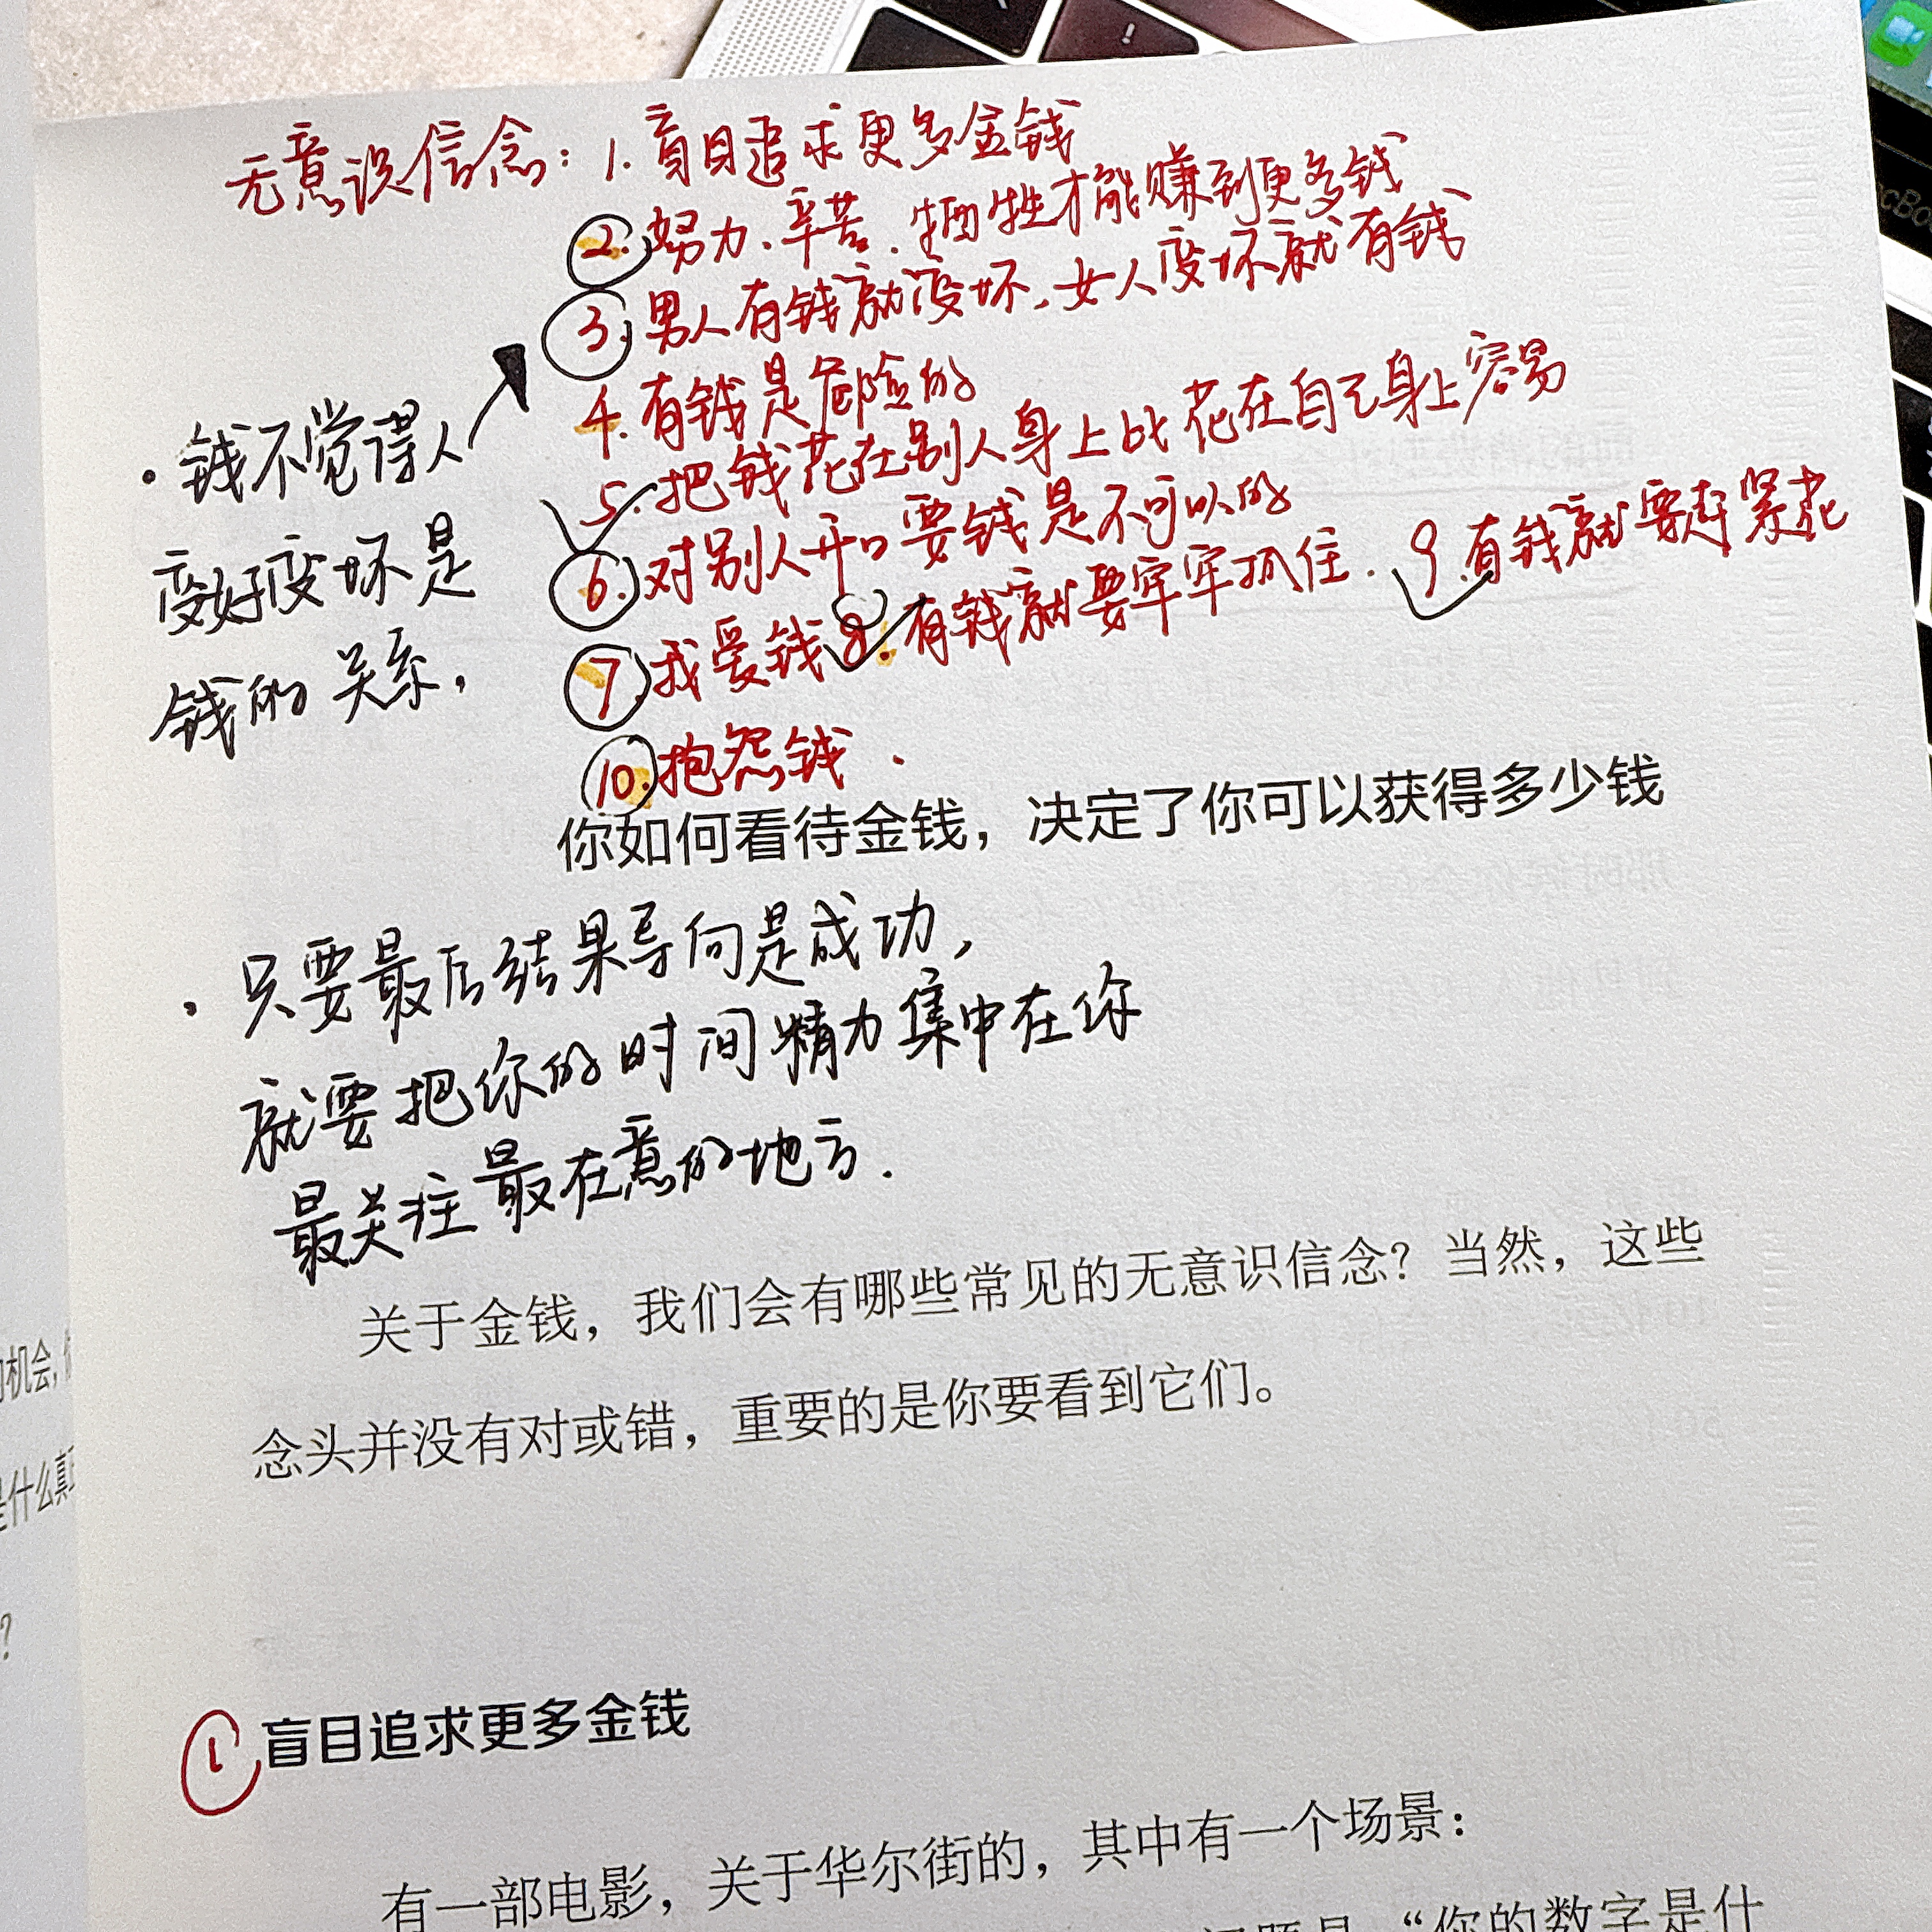 无意识信念：1. 盲目追求更多金钱
2. 努力、辛苦、牺牲才能赚到更多钱
3. 男人有钱就变坏，女人变坏就有钱
4. 有钱是危险的
5. 把钱花在别人身上比花在自己身上容易
6. 对别人开口要钱是不可以的
7. 我爱钱 8. 有钱就要牢牢抓住． 9. 有钱就要赶紧花
10. 抱怨钱．
· 钱不觉得人
变好变坏是
钱的关系，
你如何看待金钱，决定了你可以获得多少钱
· 只要最后结果导向是成功，
就要把你的时间精力集中在你
最关注最在意的地方．
关于金钱，我们会有哪些常见的无意识信念？当然，这些
念头并没有对或错，重要的是你要看到它们。
1 盲目追求更多金钱
有一部电影，关于华尔街的，其中有一个场景：
“你的数字是什
机会，
是什么真
？